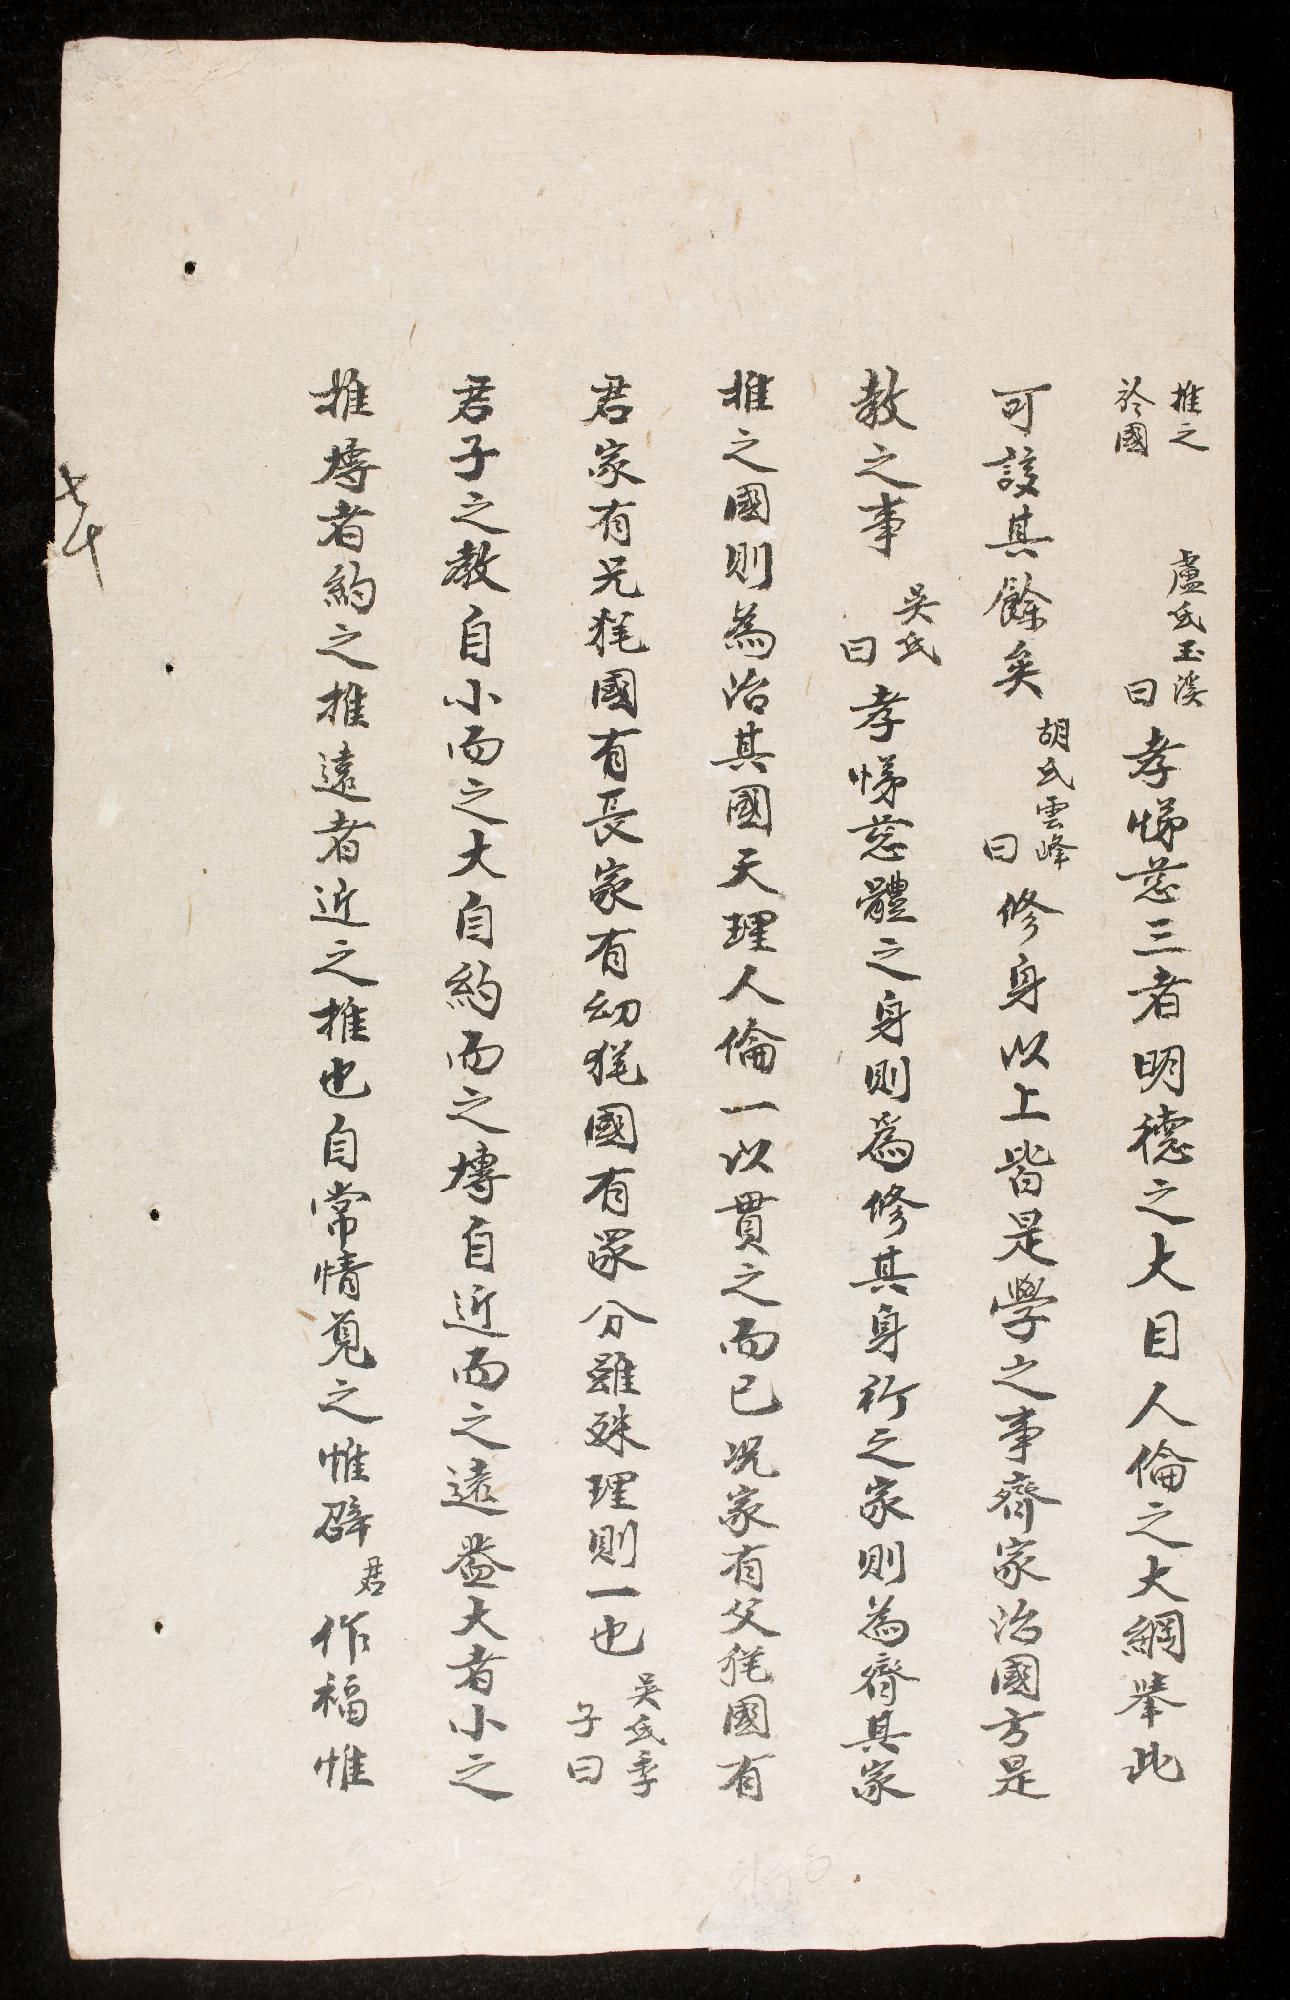 推之於國　盧氏玉溪曰孝悌慈三者明德之大目人倫之大綱舉此
可該其餘矣胡氏雲峰曰修身以上皆是學之事齊家治國方是
教之事吳氏曰孝悌慈體之身則為修其身行之家則為齊其家
推之國則為治其國天理人倫一以貫之而已況家有父犹國有
君家有兄犹國有長家有幼犹國有眾分雖殊理則一也吳氏季子曰
君子之教自小而之大自約而之博自近而之遠盖大者小之
推博者約之推遠者近之推也自常情覓之惟辟君作福惟